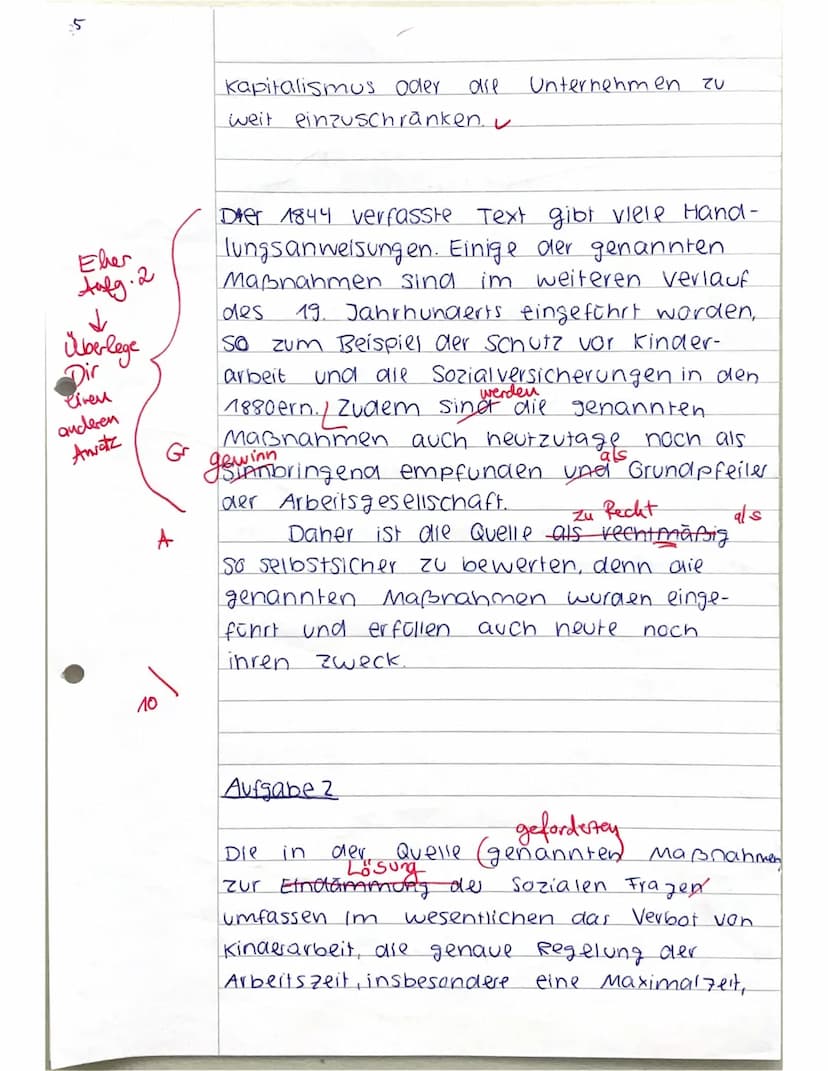 5
Kapitalismus oder die Unternehmen zu
weit einzuschränken.
Der 1844 verfasste Text gibt viele Hand-
lungsanweisungen. Einige der genannten
Eher
Aufg. 2
Maßnahmen sind im weiteren Verlauf
des 19. Jahrhunderts eingeführt worden,
Überlege
Dir
einen
anderen
Ansatz
so zum Beispiel der Schutz vor Kinder-
arbeit und die Sozialversicherungen in den
werden
1880ern. Zudem sind die genannten
Maßnahmen auch heutzutage noch als
Gr
gewinn
als
sinnbringend empfunden und Grundpfeiler
der Arbeitsgesellschaft.
zu Recht
als
A
Daher ist die Quelle als rechtmäßig
so selbstsicher zu bewerten, denn die
genannten Maßnahmen wurden einge-
führt und erfüllen auch heute noch
ihren Zweck.
10
Aufgabe 2
geforderten
Die in der Quelle (genannten) Maßnahmen
Lösung
zur Eindämmung der Sozialen Fragen
umfassen im wesentlichen das Verbot von
Kinderarbeit, die genaue Regelung der
Arbeitszeit, insbesondere eine Maximalzeit,